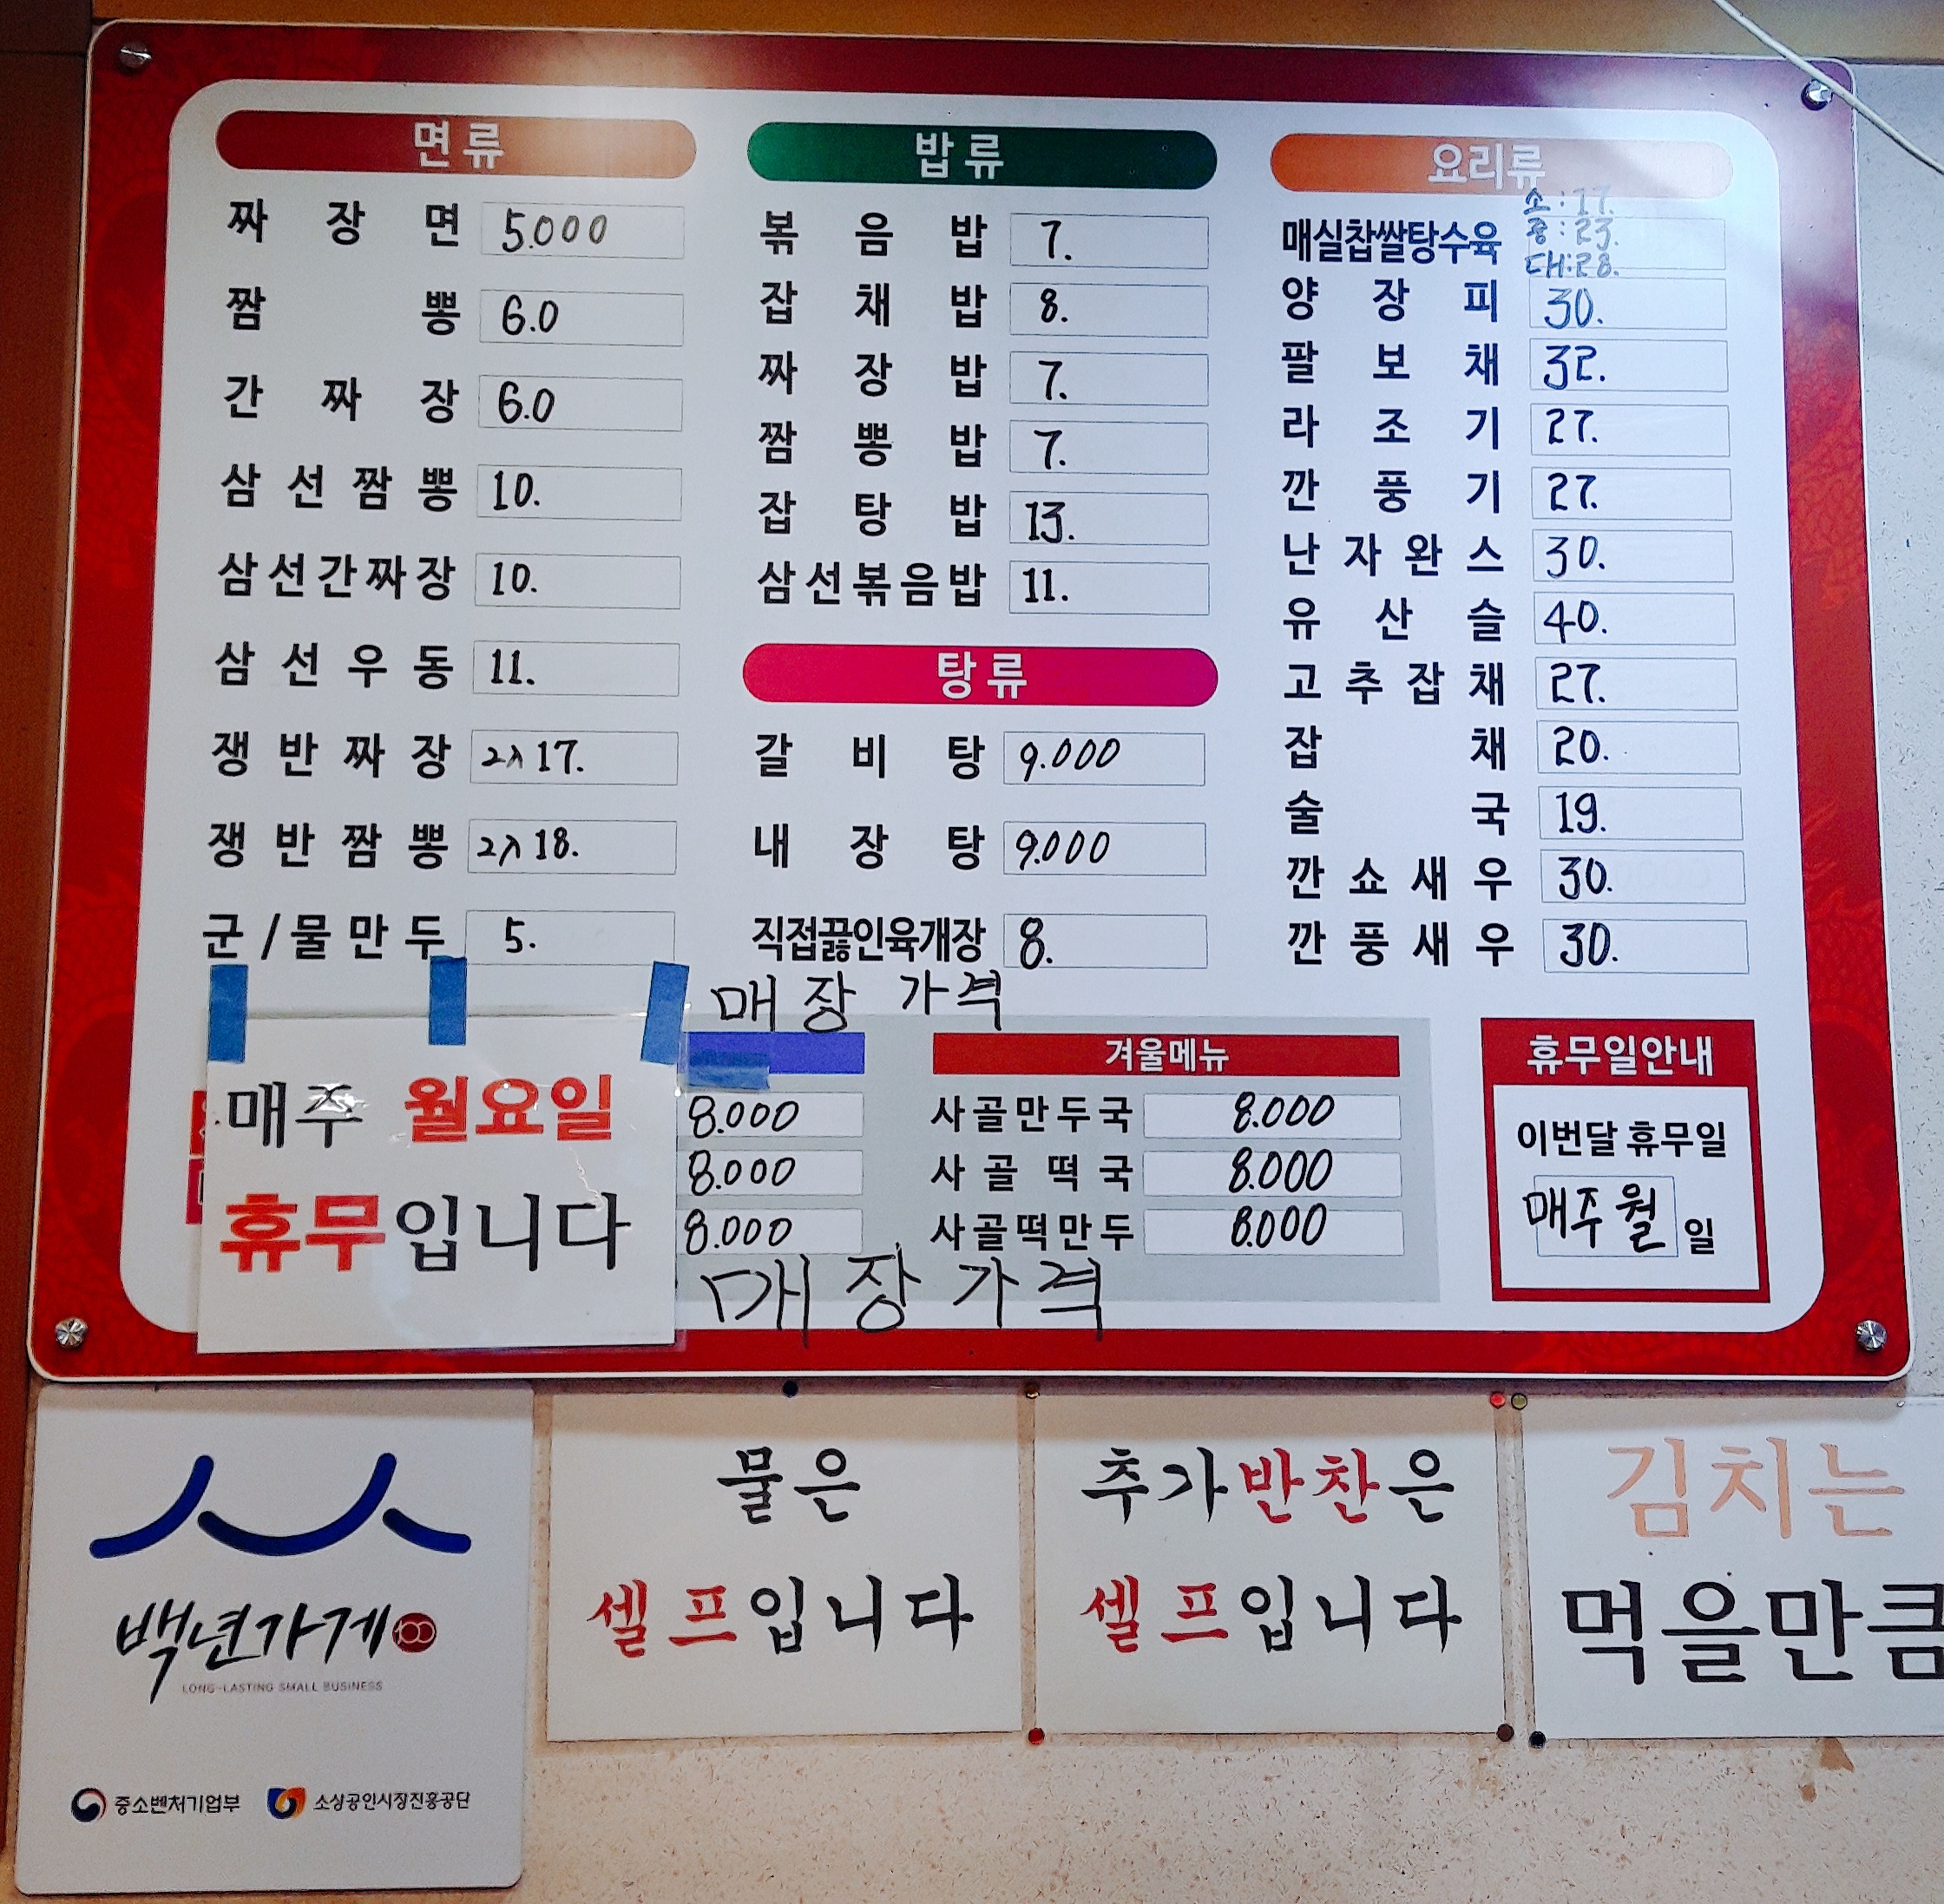 면류
짜장면 5.000
짬뽕 6.0
간짜장 6.0
삼선짬뽕 10.
삼선간짜장 10.
삼선우동 11.
쟁반짜장 2人 17.
쟁반짬뽕 2人 18.
군/물만두 5.
밥류
볶음밥 7.
잡채밥 8.
짜장밥 7.
짬뽕밥 7.
잡탕밥 13.
삼선볶음밥 11.
탕류
갈비탕 9.000
내장탕 9.000
직접끓인육개장 8.
요리류
매실찹쌀탕수육 소:17. 중:23. 대:28.
양장피 30.
팔보채 32.
라조기 27.
깐풍기 27.
난자완스 30.
유산슬 40.
고추잡채 27.
잡채 20.
술국 19.
깐쇼새우 30.
깐풍새우 30.
매장 가격
매주 월요일
휴무입니다
8.000
8.000
8.000
겨울메뉴
사골만두국 8.000
사골떡국 8.000
사골떡만두 8.000
매장가격
휴무일안내
이번달 휴무일
매주월 일
백년가게 100
LONG-LASTING SMALL BUSINESS
중소벤처기업부 소상공인시장진흥공단
물은
셀프입니다
추가반찬은
셀프입니다
김치는
먹을만큼